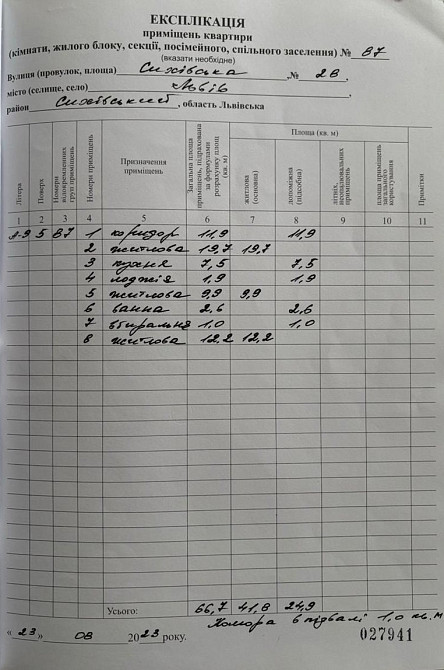 ЕКСПЛІКАЦІЯ
приміщень квартири
(кімнати, жилого блоку, секції, посімейного, спільного заселення) № 87
(вказати необхідне)
Вулиця (провулок, площа) Сихівська, № 28,
місто (селище, село) Львів,
район Сихівський, область Львівська
Літера Поверх Номери відокремлених груп приміщень Номери приміщень Призначення приміщень Загальна площа приміщень, підрахована за формулами розрахунку площ (кв. м) Площа (кв. м) житлова (основна) допоміжна (підсобна) літніх, неопалювальних приміщень площа приміщень загального користування Примітки
1 2 3 4 5 6 7 8 9 10 11
А-9 5 87 1 коридор 11,9 11,9
2 житлова 19,7 19,7
3 кухня 7,5 7,5
4 лоджія 1,9 1,9
5 житлова 9,9 9,9
6 ванна 2,6 2,6
7 вбиральня 1,0 1,0
8 житлова 12,2 12,2
Усього: 66,7 41,8 24,9
Комора в підвалі 1,0 кв.м
« 23 » 08 2023 року.
027941